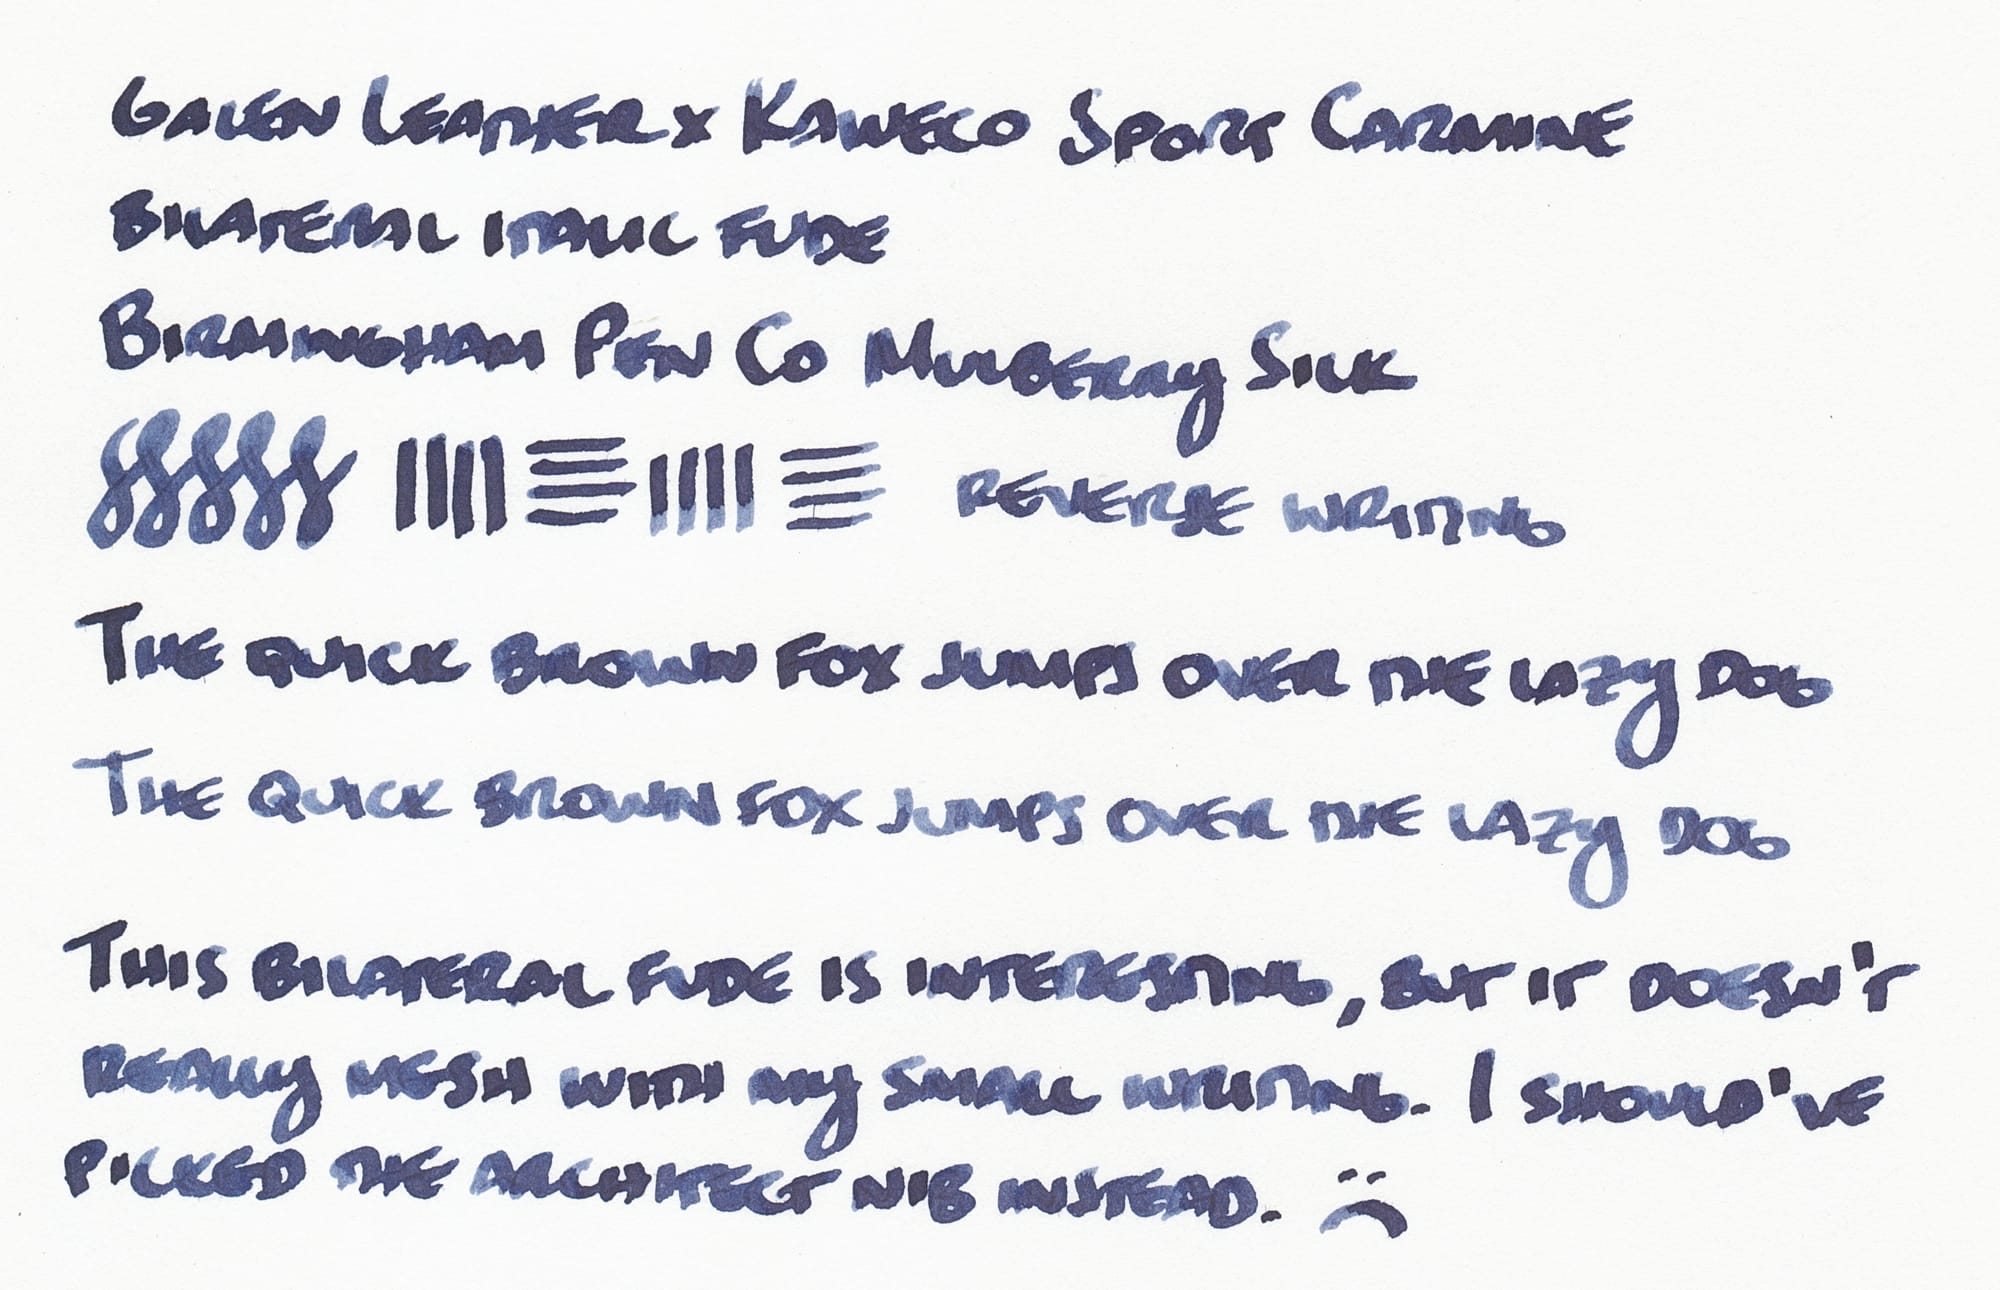 Galen Leather x Kaweco Sport Carmine
Bilateral Italic Fude
Birmingham Pen Co Mulberry Silk
Reverse Writing
The quick brown fox jumps over the lazy dog
The quick brown fox jumps over the lazy dog
This bilateral fude is interesting, but it doesn't
really mesh with my small writing. I should've
picked the architect nib instead. :(